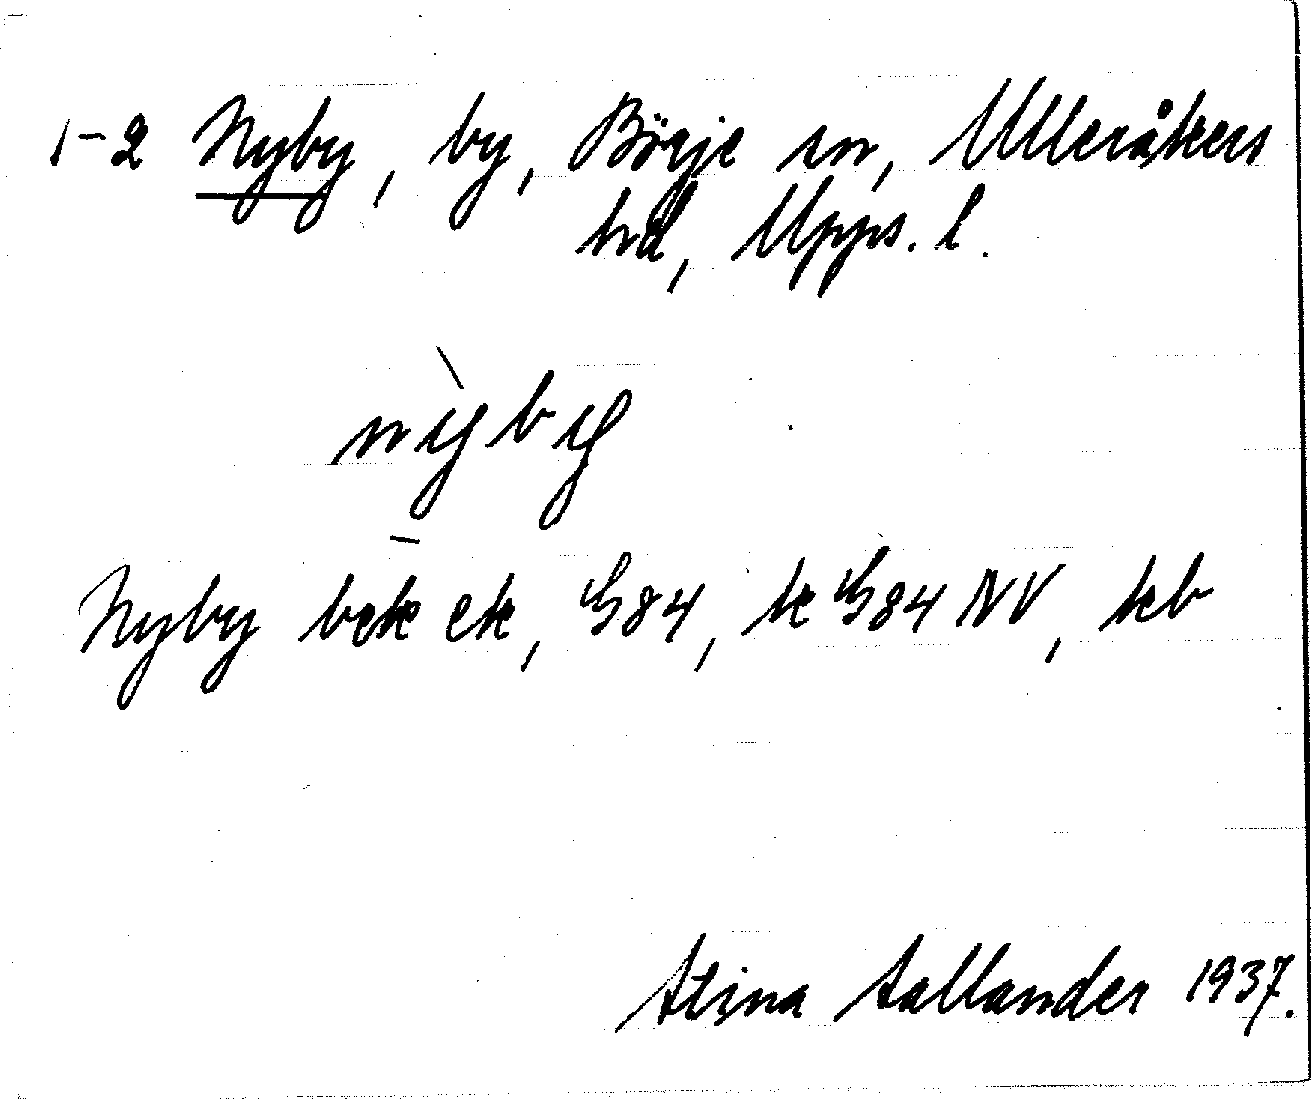 1-2 Nyby, by, Börje sn, Ulleråkers
hd, Upps. l.
nỳby
Nyby bek ek, G84, k G84 NV, kb
Stina Sallander 1937.